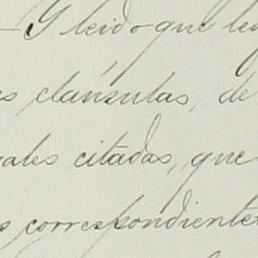 Y leido que le
es cláusulas, de
ales citadas, que
s correspondiente